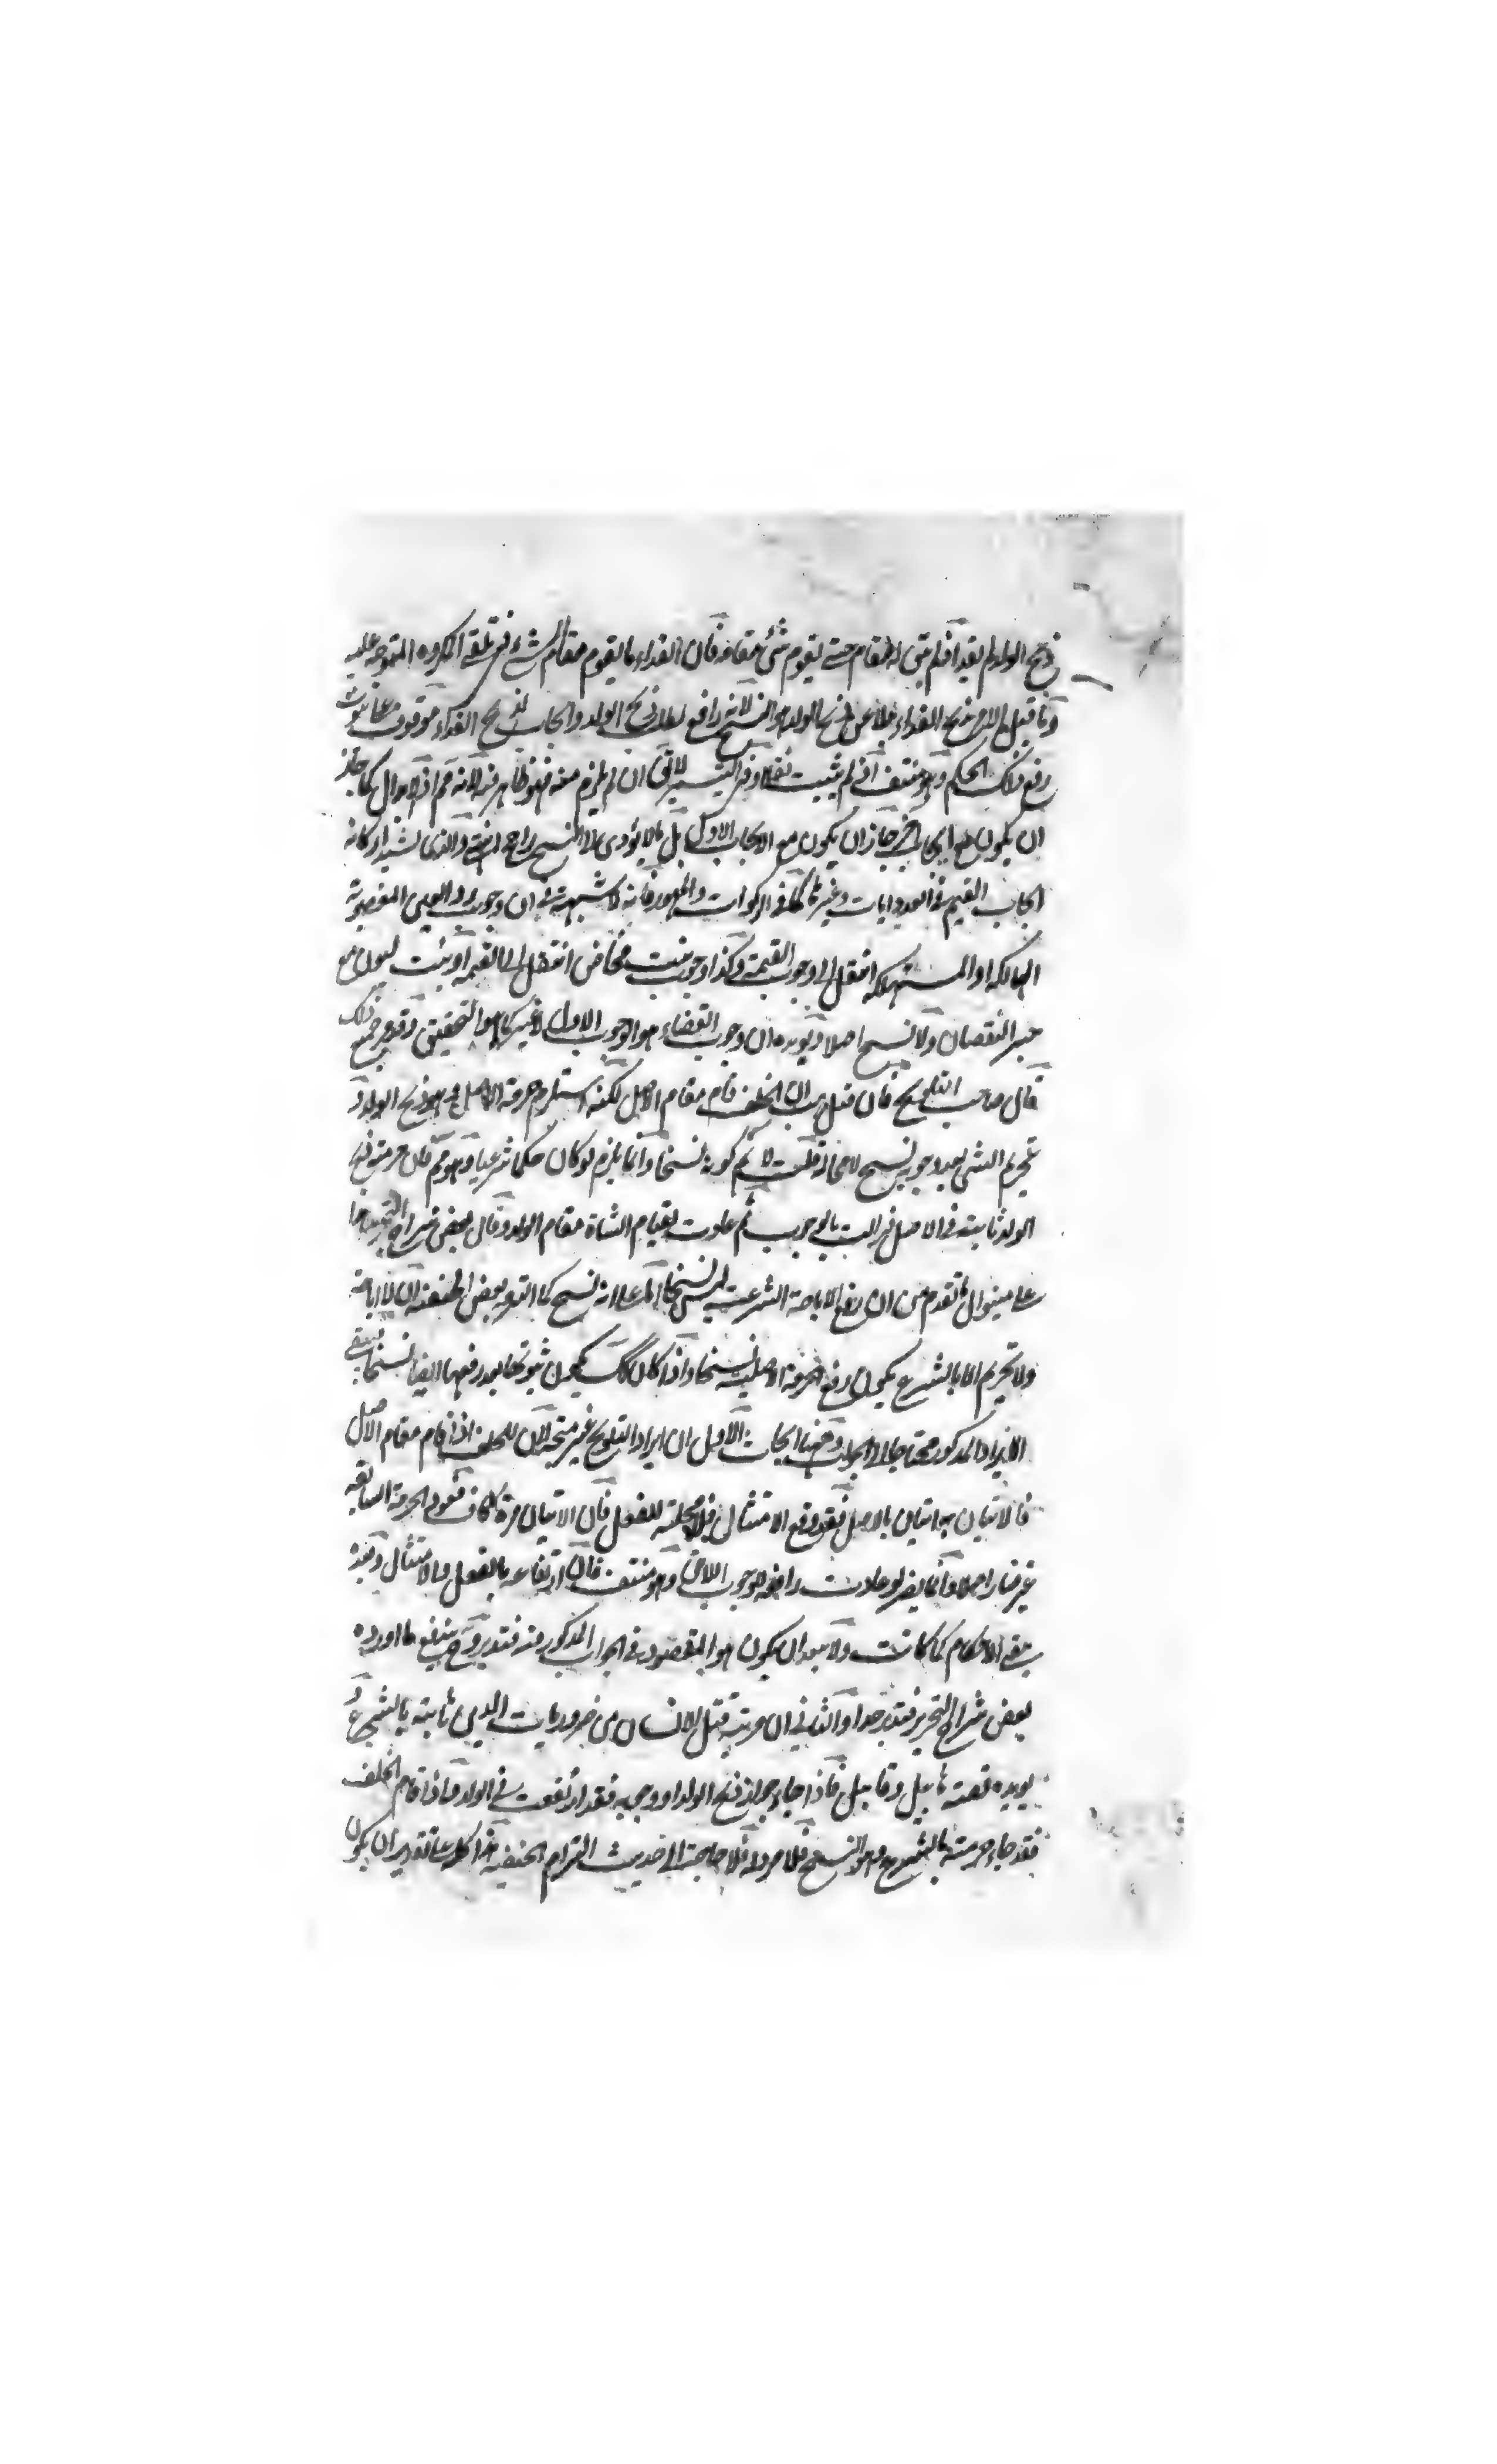 ذبح الولد لم يفد اذ لم يبق له مقام حتى يقوم شئ مقامه فان الفداء ما يقوم مقام الشئ في تلقي المكروه المتوجه عليه
وما قيل الامر بذبح الفداء بدلا عن ذبح الولد هو النسخ لانه رافع لطلب ذبح الولد وايجاب لذبح الفداء موقوف على ثبوت
رفع ذلك الحكم وهو منتف اذ لم يثبت نقلا وفي التيسير لا يقال ان لم يلزم منه فهو ظاهر فيه لانه مم اذ الابدال كما جاز
ان يكون مع ايجاب آخر جاز ان يكون مع الايجاب الاول بل ما لا يؤدى الى النسخ راجح انتهى والذى يشيد اركانه
ايجاب القيم في العدوانات وغيرها كما في الزكوات والمهور فانه لا شبهة في ان وجوب رد العين المغصوبة
الهالكة او المستهلكة انتقل الى وجوب القيمة وكذا وجوب بنت مخاض انتقل الى القيمة او بنت لبون مع
جبر النقصان ولا نسخ اصلا ويؤيده ان وجوب القضاء هو الوجوب الاول لا غير كما هو التحقيق وقد مر جميع ذلك
قال صاحب التلويح فان قيل هب ان الخلف قام مقام الاصل لكنه استلزم حرمة الاصل وهو ذبح الولد و
تحريم الشئ بعد وجوبه نسخ لا محالة قلت لا نم كونه نسخا وانما يلزم لو كان حكما شرعيا وهو مم فان حرمة ذبح
الولد ثابتة في الاصل فزالت بالوجوب ثم عادت بقيام الشاة مقام الولد وقال بعض شراح التحرير هذا
على منوال ما تقدم من ان رفع الاباحة الشرعية ليس نسخا اما على انه نسخ كما التزمه بعض الحنفية اذ لا اباحة
ولا تحريم الا بالشرع يكون رفع الحرمة الاصلية نسخا واذا كان كك يكون ثبوتها بعد رفعها ايضا نسخا فيبقى
الايراد المذكور محتاجا الى الجواب وههنا ابحاث الاول ان ايراد التلويح غير متجه لان الخلف اذا قام مقام الاصل
فالاتيان به اتيان بالاصل فقد وقع الامتثال فلا محلية للفعل فان الاتيان مرة كان فعود الحرمة السابقة
غير ضار اصلا وانما يضر لو عادت رافعة لوجوب اللاحق وهو منتف فان ارتفاعه بالفعل والامتثال وبعده
يبقى الاحكام كما كانت ولا يبعد ان يكون هو المقصود في الجواب المذكور منه فتدبر وح يندفع ما اورده
بعض شراح التحرير فتدبر جدا والثاني ان حرمة قتل الانسان من ضروريات الدين ثابتة بالشرع و
يويده قصة هابيل وقابيل فاذا جاء جواز ذبح الولد او وجوبه فقد ارتفعت في الولد فاذا قام الخلف
فقد جاء حرمته بالشرع وهو النسخ فلا مرد له فلا حاجة الى حديث التزام الحنفية هذا كله على تقدير ان يكون